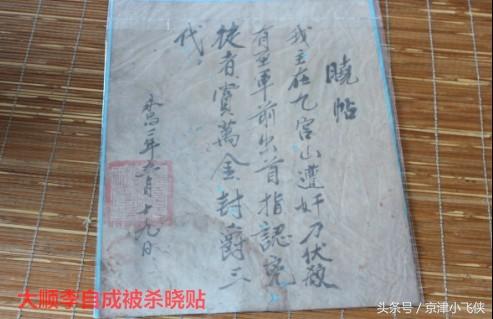 曉帖
我主在九宮山遭奸刀伏殺
有至軍前出首指認兇
徒者賞萬金封爵三
代
永昌二年五月十九日
大顺李自成被杀晓贴
头条号 / 京津小飞侠